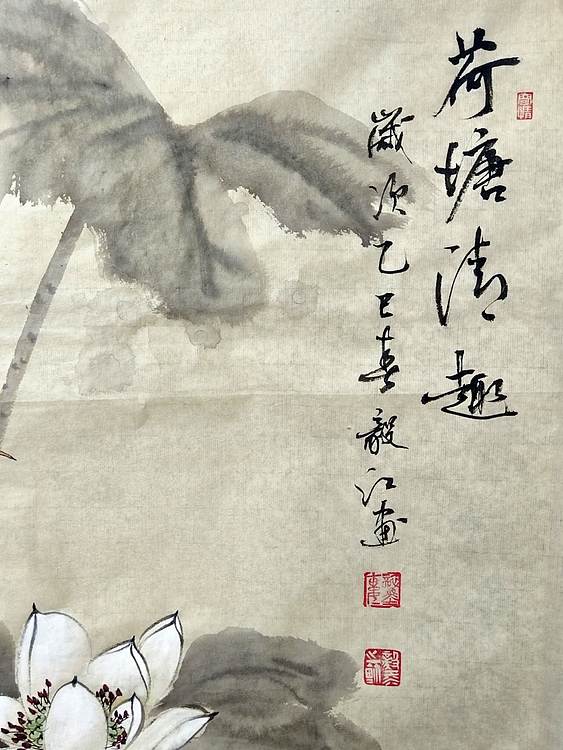 荷塘清趣
歲次乙巳春毅江畫